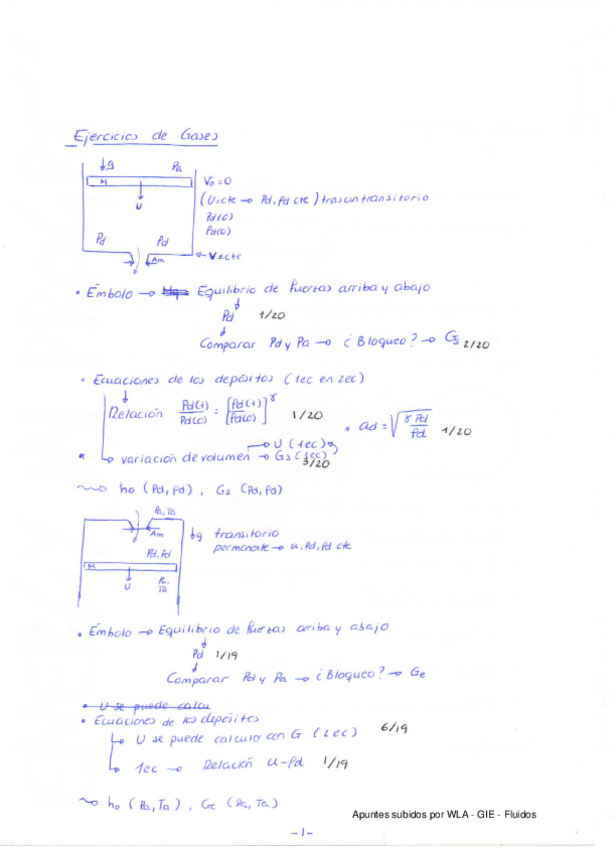 Ejercicios de Gases
↓g Pa
M
U
V₀=0
(U=cte → Pd, ρd cte) tras un transitorio
Pd(0)
ρd(0)
Pd ρd
Am
← V≠cte
• Émbolo → Equilibrio de fuerzas arriba y abajo
Pd 1/20
Comparar Pd y Pa → ¿Bloqueo? → Gs 2/20
• Ecuaciones de los depósitos (1ec en 2ec)
Relación Pd(t)/Pd(0) = [ρd(t)/ρd(0)]^γ 1/20
• ad = √(γ Pd/ρd) 1/20
→ U (1ec)
↳ variación de volumen → Gs (1ec)
3/20
⇝ ho (Pd, ρd), Gs (Pd, ρd)
Pa, Ta
Am
↓g transitorio
permanente → u, Pd, ρd cte
Pd, ρd
M
U
Pa,
Ta
• Émbolo → Equilibrio de fuerzas arriba y abajo
Pd 1/19
Comparar Pd y Pa → ¿Bloqueo? → Ge
• U se puede calcu
• Ecuaciones de los depósitos
↳ U se puede calculo con G (2ec) 6/19
↳ 1ec → Relación U-Pd 1/19
⇝ ho (Pa, Ta), Ge (Pa, Ta)
Apuntes subidos por WLA - GIE - Fluidos
-1-